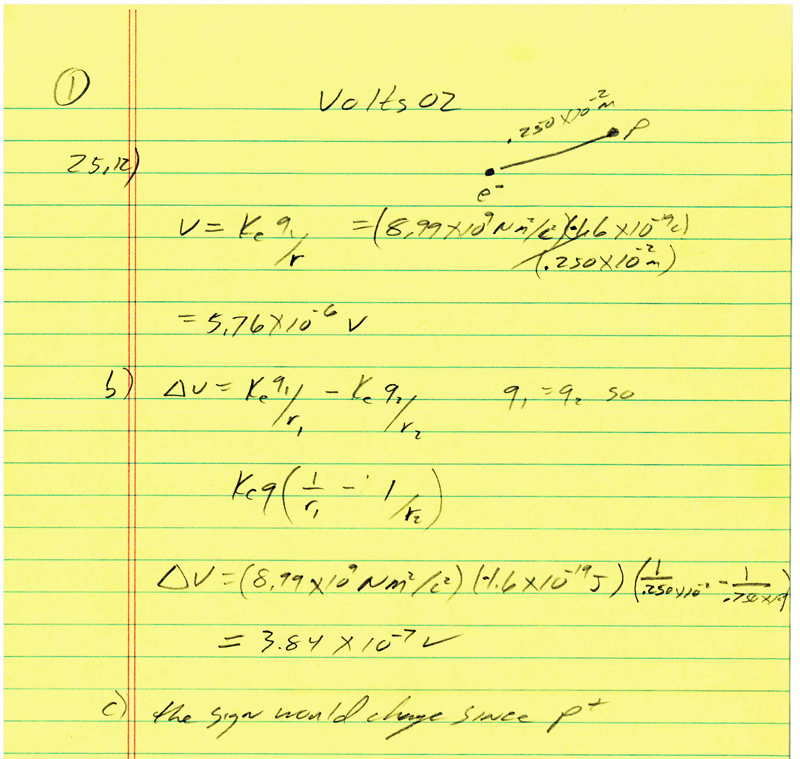 ①
Volts 02
.250×10⁻² m
p
25.12)
e⁻
V = Ke q₁/r = (8.99×10⁹ Nm²/c²)(-1.6×10⁻¹⁹c)/(.250×10⁻² m)
= 5.76×10⁻⁶ V
b) ΔV = Ke q₁/r₁ - Ke q₂/r₂ q₁ = q₂ so
Ke q (1/r₁ - 1/r₂)
ΔV = (8.99×10⁹ Nm²/c²)(-1.6×10⁻¹⁹ J)(1/.250×10⁻² - 1/.750×10⁻²)
= 3.84×10⁻⁷ V
c) the sign would change since p⁺